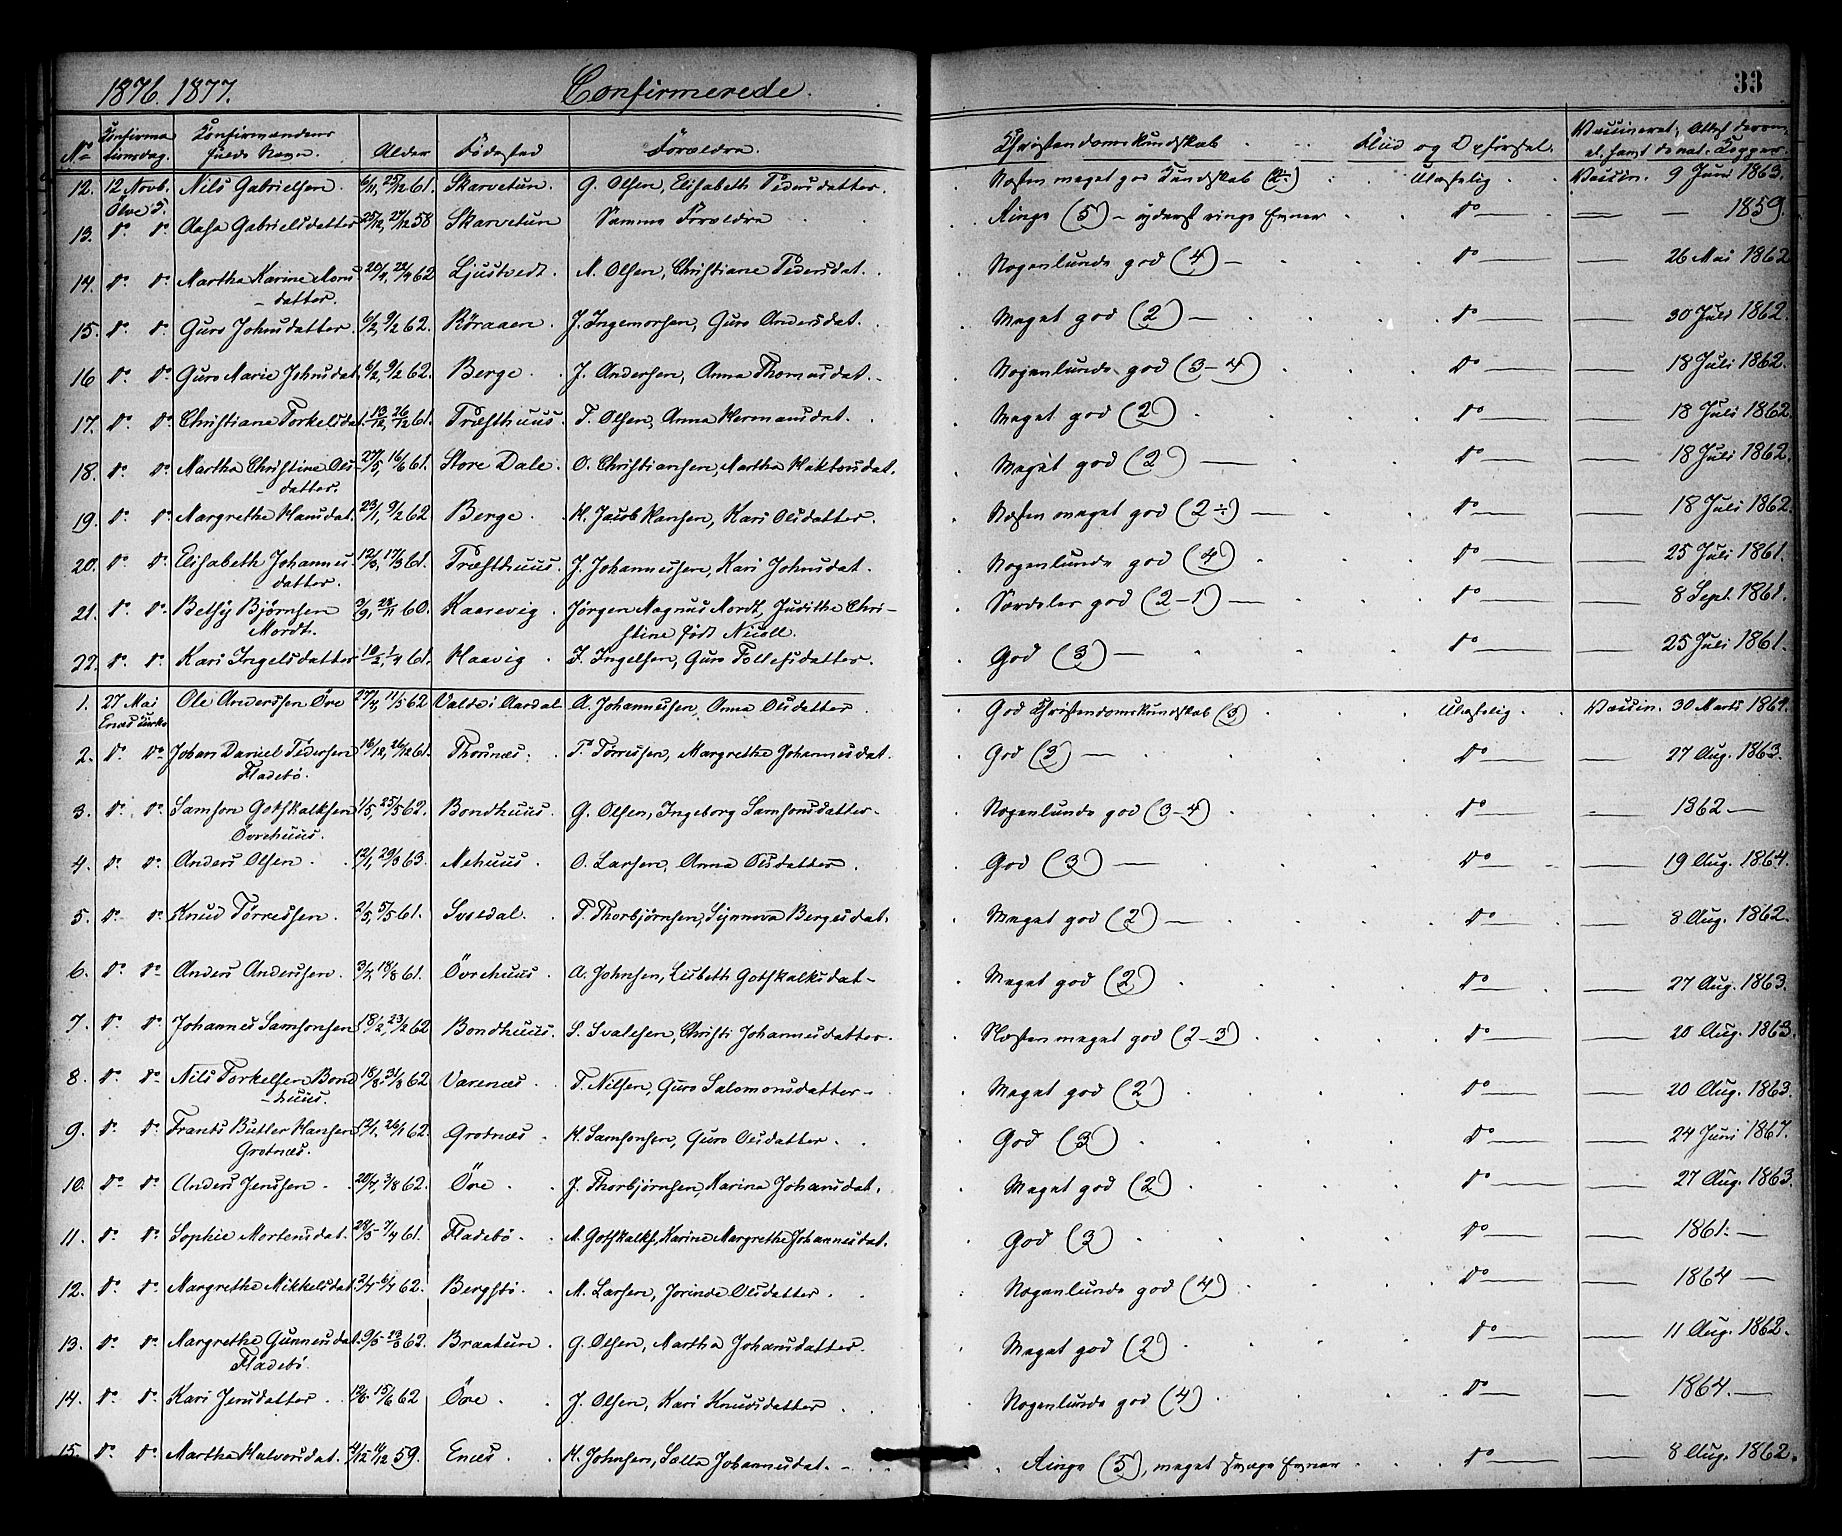 1876. 1877. Confirmerede. 33
No Konfirmationsdag. Konfirmandens fulde Navn. Alder Födested Forældre Christendomskundskab Flid og Opförsel. Vaccineret, Attest derom,
12. 12 Novb. Nils Gabrielsen. 6/11, 25/12 61. Skarvetun. G. Olsen, Elisabeth Pedersdatter. Næsten meget god Kundskab (2÷) Ulastelig Vaccin. 9 Juni 1863.
Ölve K.
13. do do Aasa Gabrielsdatter 25/12, 27/12 58 Skarvetun Samme Forældre Ringe (5) – yderst ringe Evner do — — 1859.
14. do do Martha Karine Mons 20/4, 22/4 62 Ljustvedt. M. Olsen, Christiane Pedersdat. Nogenlunde god (4) — do — 26 Mai 1862
-datter.
15. do do Guro Johnsdatter. 6/2, 9/2 62. Röraaen. J. Ingemorsen, Guro Andersdat. Meget god (2) — do — 30 Juli 1862.
16 do do Guro Marie Johnsdat. 6/2, 9/2 62. Berge. J. Andersen, Anna Thomasdat. Nogenlunde god (3-4) do — 18 Juli 1862.
17. do do Christiane Torkelsdat. 13/12, 26/12 61. Træsthuus. T. Olsen, Anna Hermansdat. Meget god (2) do — 18 Juli 1862.
18. do do Martha Christine Ols 27/5, 16/6 61. Store Dale. O. Christiansen, Martha Haktorsdat. Meget god (2) — do — 18 Juli 1862.
-datter.
19. do do Margrethe Hansdat. 23/1, 9/2 62 Berge. H. Jacob Hansen, Kari Olsdatter. Næsten meget god (2÷) — do — 18 Juli 1862.
20. do do Elisabeth Johannes 12/3, 17/3 61. Træsthuus. J. Johannessen, Kari Johnsdat. Nogenlunde god (4) do — 25 Juli 1861.
datter.
21. do do Betsy Bjørnsen 3/9, 28/11 60. Kaarevig. Jørgen Magnus Mordt, Judithe Chri- Særdeles god (2-1) — do — 8 Sept. 1861.
Mordt. stine født Nicoll.
22. do do Kari Ingelsdatter 10/2, 1/4 61. Haavig. I. Ingelsen, Guro Tollefsdatter. God (3) — do — 25 Juli 1861.
1. 27 Mai Ole Anderssen Öre 27/4, 11/5 62 Valde i Aardal A. Johannessen, Anna Olsdatter. God Christendomskundskab (3) Ulastelig Vaccin. 30 Marts 1864.
Enæs Kirke
2. do do Johan Daniel Pedersen 16/12, 26/12 61. Thorsnæs. P. Torressen, Margrethe Johannesdat. God (3) — do — 27 Aug. 1863.
Fladebö.
3. do do Samson Gotskalksen 1/5, 25/5 62. Bondhuus. G. Olsen, Ingeborg Samsonsdatter. Nogenlunde god (3-4) do — 1862 —
Övrehuus.
4. do do Anders Olsen. 12/1, 29/3 63. Nehuus. O. Larsen, Anna Olsdatter. God (3) — do — 19 Aug. 1864.
5. do do Knud Tørressen. 2/5, 5/5 61. Svoldal. T. Thorbjörnsen, Synnova Bergesdat. Meget god (2) — do — 8 Aug. 1862.
6. do do Anders Anderssen. 3/7, 18/8 61. Övrehuus. A. Johnsen, Lisbeth Gotskalksdat– Meget god (2) do — 27 Aug. 1863.
7. do do Johannes Samsonsen 18/2, 23/2 62 Bondhuus. S. Svalesen, Christi Johannesdatter. Næsten meget god (2-3) do — 20 Aug. 1863.
8. do do Nils Torkelsen Bond 18/3, 31/3 62 Varenæs. T. Nilsen, Guro Salomonsdatter – Meget god (2) do — 20 Aug. 1863.
-huus.
9. do do Frants Butler Hansen 12/1, 26/1 62. Grotnæs. H. Samsonsen, Guro Olsdatter. God (3) do — 24 Juni 1867.
Grotnæs.
10. do do Anders Jenssen. 20/7, 3/8 62. Öre. J. Thorbjörnsen, Karina Johansdat. Meget god (2) do — 27 Aug. 1863.
11. do do Sophie Mortensdat. 28/3 7/4 61. Fladebö. M. Gotskalks. Karine Margrethe Johannesdat. God (3) do — 1861. —
12. do do Margrethe Mikkelsdat. 2/4 6/4 62. Bergstö. M. Larsen, Jorinde Olsdatter. Nogenlunde god (4) do — 1864 —
13. do do Margrethe Gunnesdat. 9/3 23/3 62. Braatun. G. Olsen, Martha Johansdatter. Meget god (2) do — 11 Aug. 1862.
Fladebö.
14. do do Kari Jensdatter. 12/6 15/6 62 Öre. J. Olsen, Kari Knudsdatter. Nogenlunde god (4) do — 1864. —
15. do do Martha Halvorsdat. 59. Enæs. H. Johnsen, Johannesdat. Ringe (5), meget svage Evner do — 8 Aug. 1862.